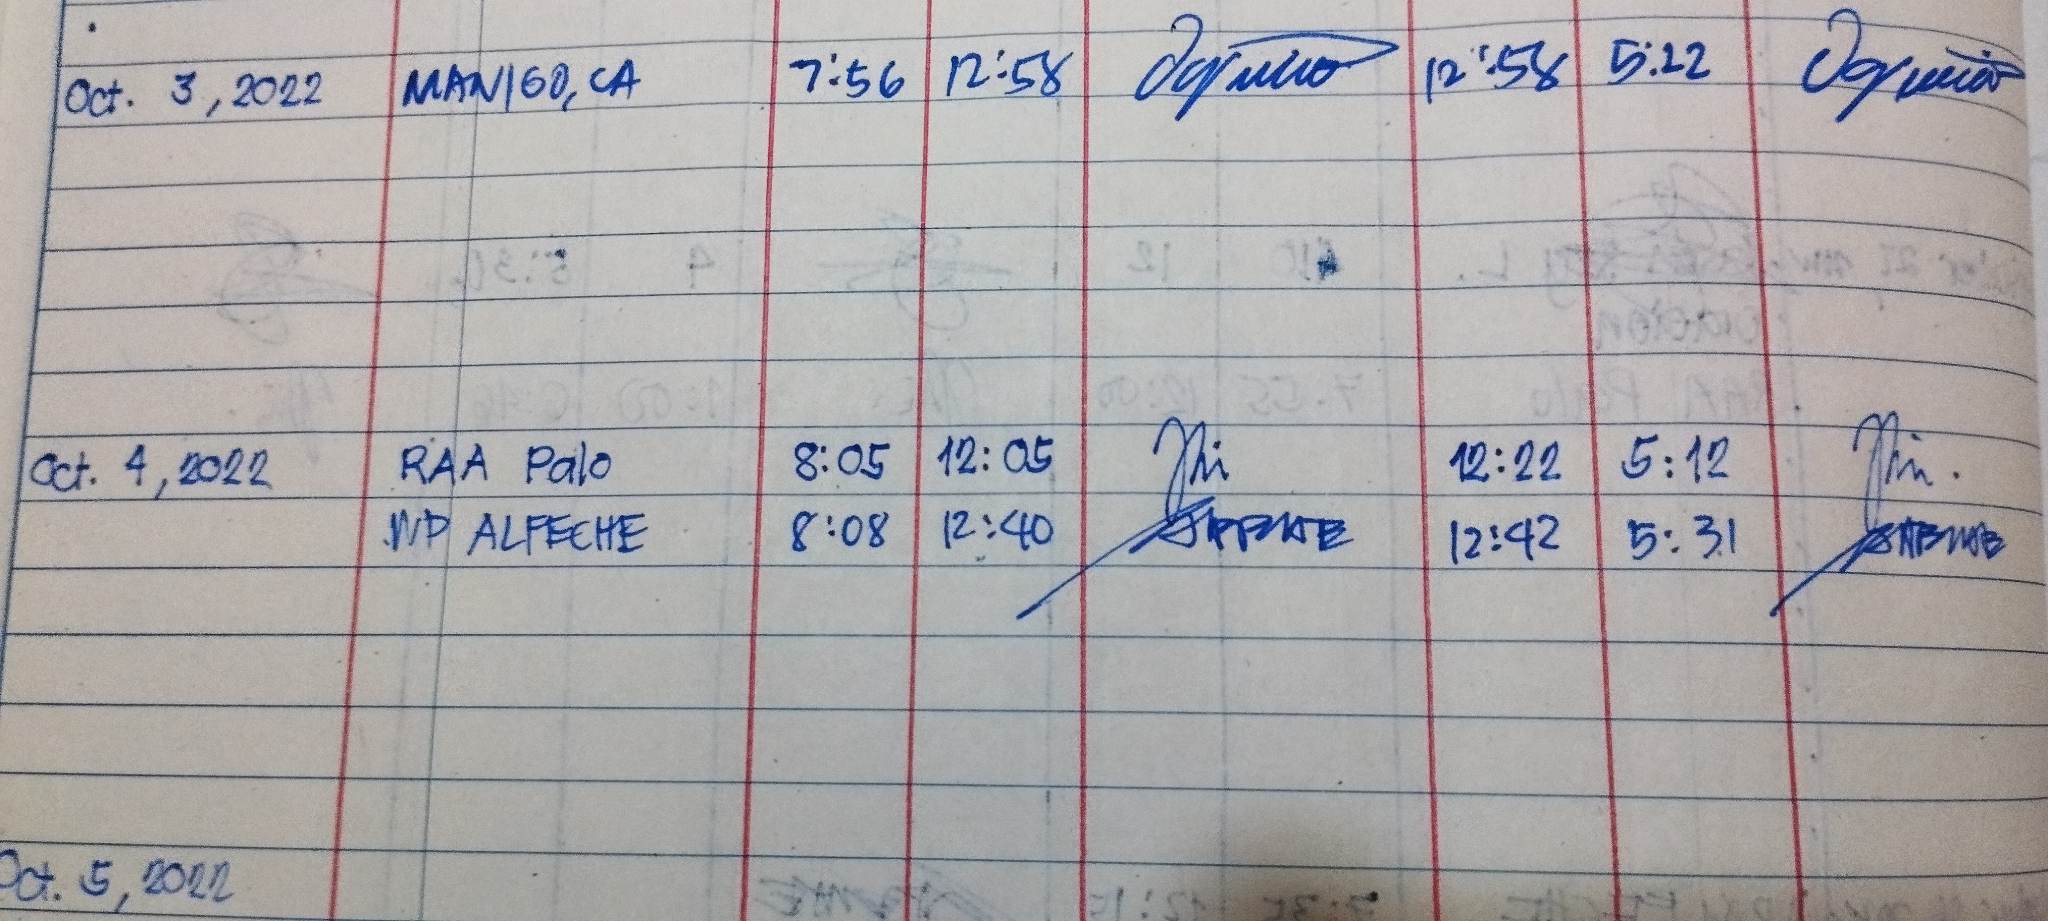 Oct. 3, 2022 MANIGO, CA 7:56 12:58 12:58 5:22
Oct. 4, 2022 RAA Palo 8:05 12:05 12:22 5:12
WP ALFECHE 8:08 12:40 12:42 5:31
Oct. 5, 2022